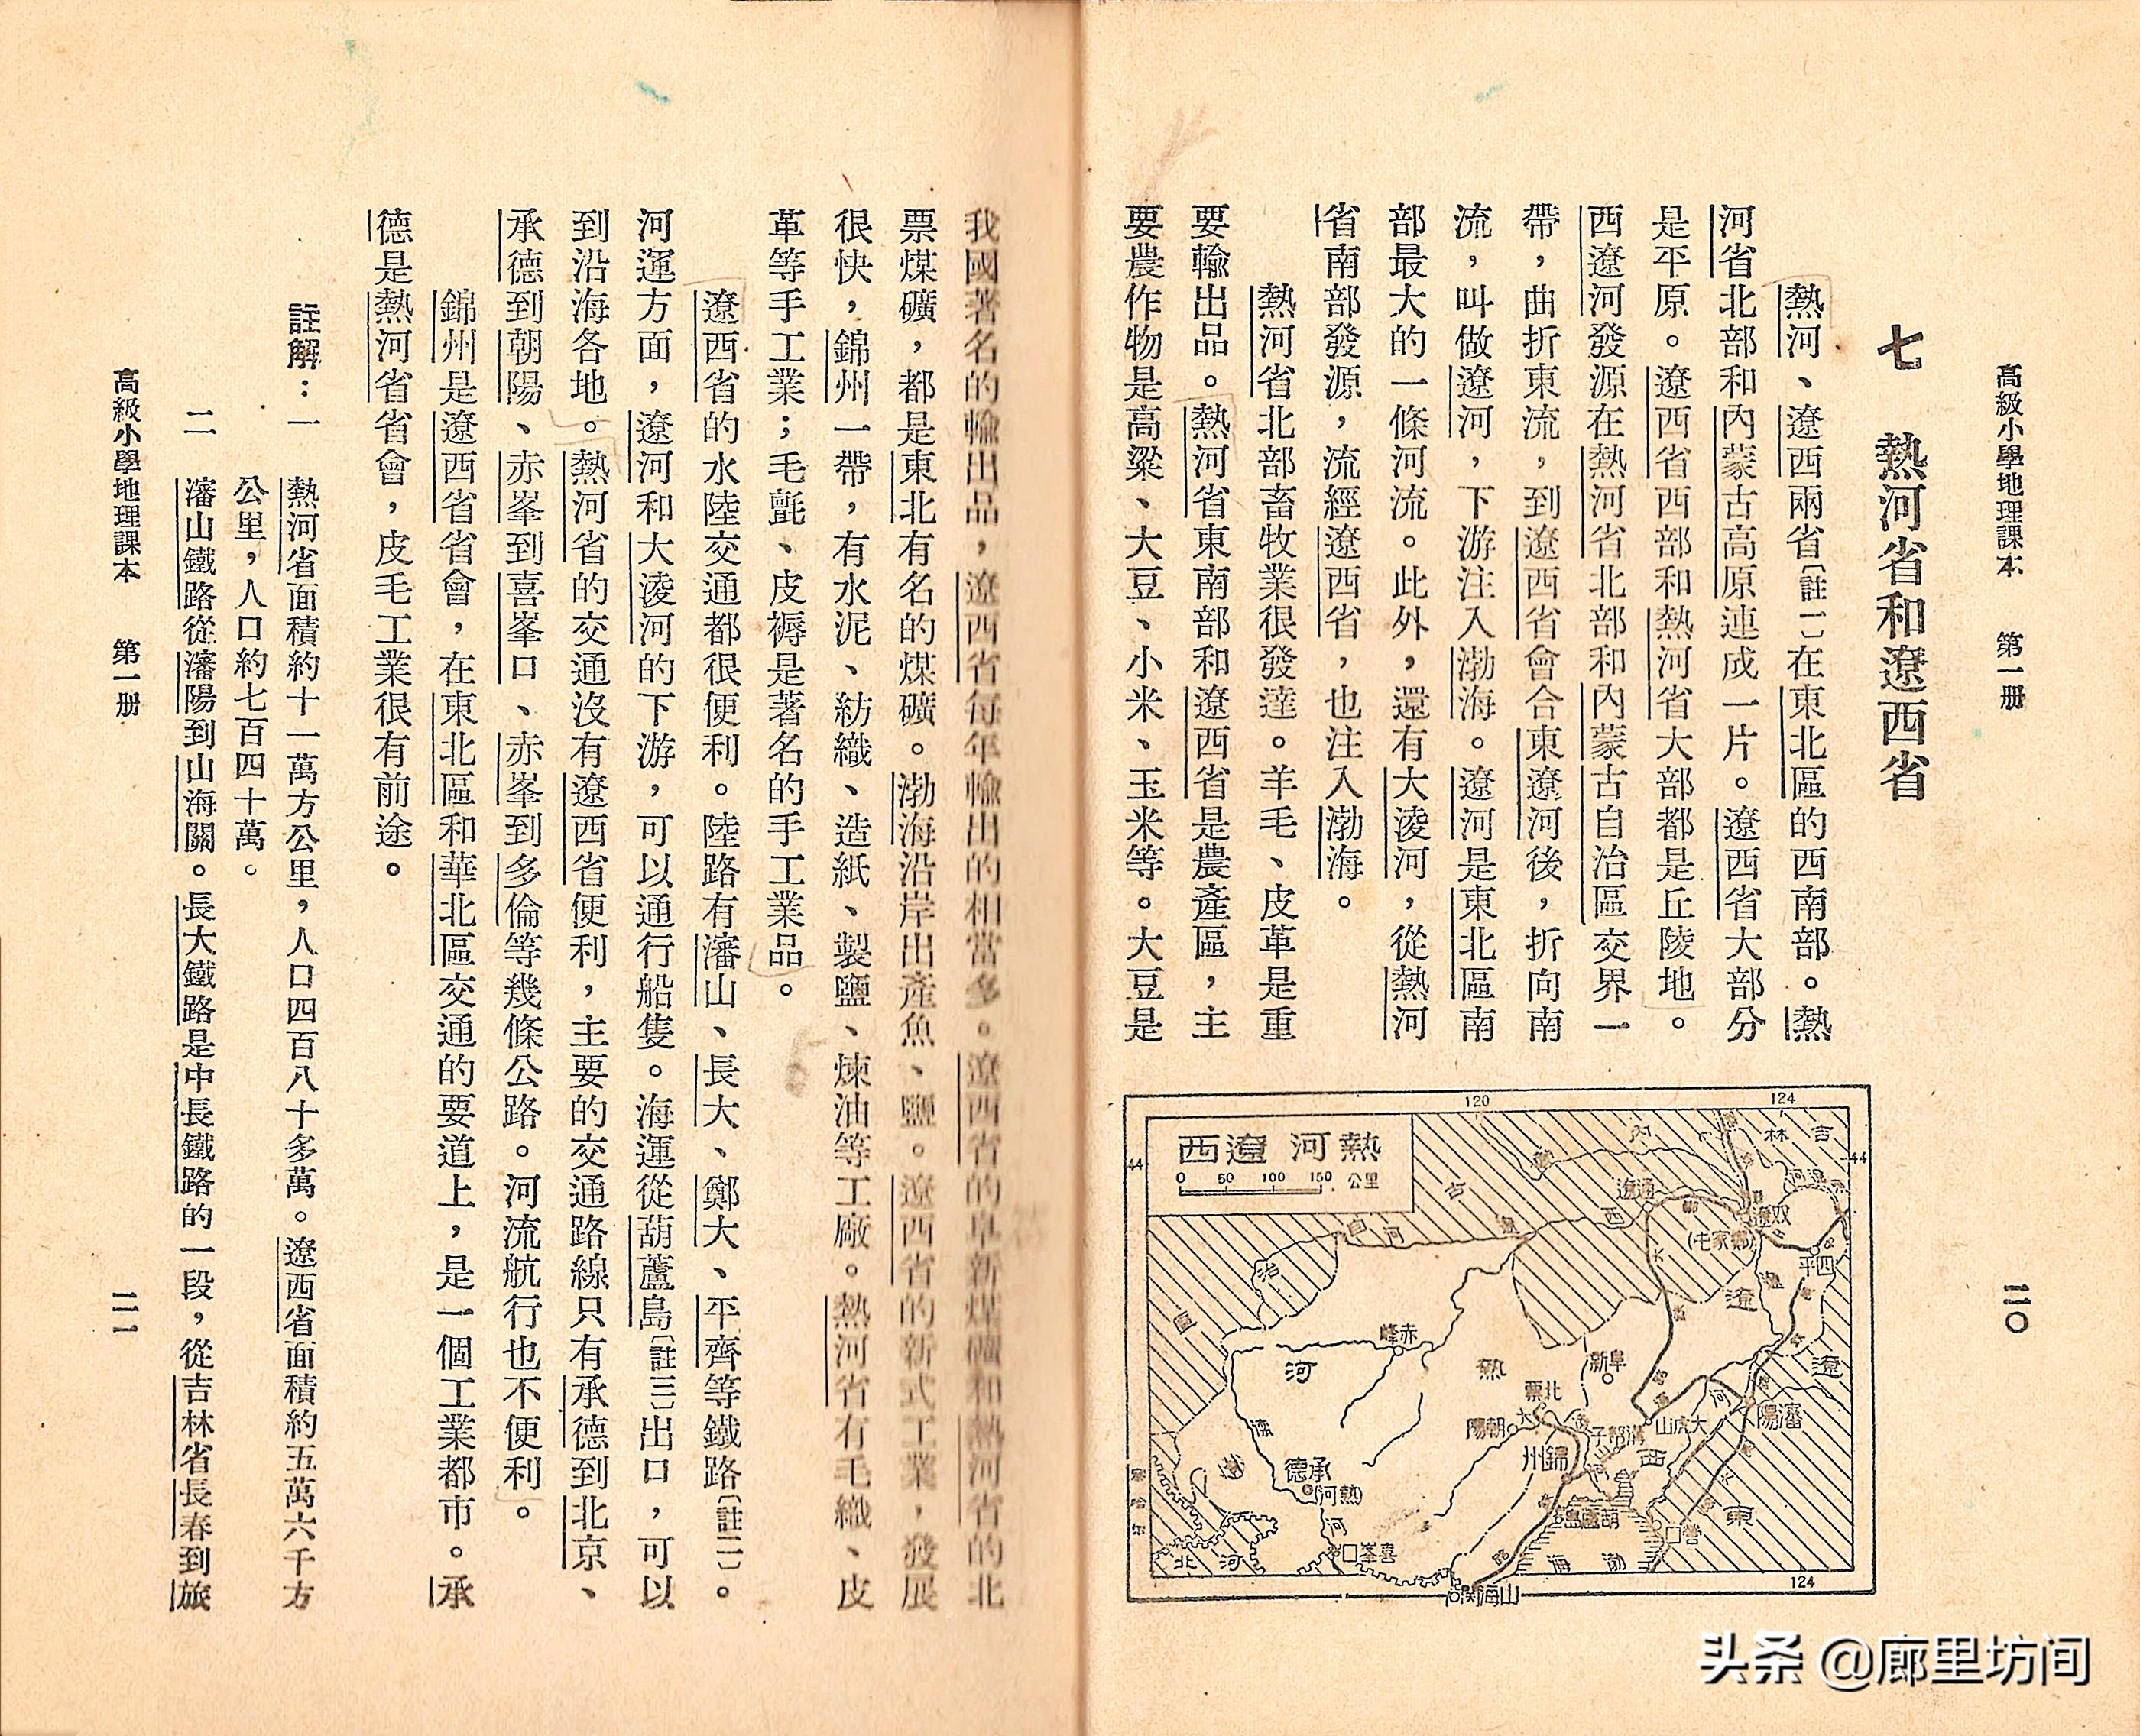 高級小學地理課本　第一册
二〇
七　熱河省和遼西省
熱河、遼西兩省〔註一〕在東北區的西南部。熱
河省北部和內蒙古高原連成一片。遼西省大部分
是平原。遼西省西部和熱河省大部都是丘陵地。
西遼河發源在熱河省北部和內蒙古自治區交界一
帶，曲折東流，到遼西省會合東遼河後，折向南
流，叫做遼河，下游注入渤海。遼河是東北區南
部最大的一條河流。此外，還有大淩河，從熱河
省南部發源，流經遼西省，也注入渤海。
熱河省北部畜牧業很發達。羊毛、皮革是重
要輸出品。熱河省東南部和遼西省是農產區，主
要農作物是高粱、大豆、小米、玉米等。大豆是
熱河 遼西
0 50 100 150 公里
120
124
44
44
124
內
吉林
古
通遼
西
遼
双遼
(鄭家屯)
四平
治
區
赤峰
河
熱
阜新
遼
北票
朝陽
大虎山
溝幫子
瀋陽
錦州
西
承德
(熱河)
葫蘆島
營口
東
喜峯口
渤海
河北
山海関
我國著名的輸出品，遼西省每年輸出的相當多。遼西省的阜新煤礦和熱河省的北
票煤礦，都是東北有名的煤礦。渤海沿岸出產魚、鹽。遼西省的新式工業，發展
很快，錦州一帶，有水泥、紡織、造紙、製鹽、煉油等工廠。熱河省有毛織、皮
革等手工業；毛氈、皮褥是著名的手工業品。
遼西省的水陸交通都很便利。陸路有瀋山、長大、鄭大、平齊等鐵路〔註二〕。
河運方面，遼河和大淩河的下游，可以通行船隻。海運從葫蘆島〔註三〕出口，可以
到沿海各地。熱河省的交通沒有遼西省便利，主要的交通路線只有承德到北京、
承德到朝陽、赤峯到喜峯口、赤峯到多倫等幾條公路。河流航行也不便利。
錦州是遼西省省會，在東北區和華北區交通的要道上，是一個工業都市。承
德是熱河省省會，皮毛工業很有前途。
註解：一　熱河省面積約十一萬方公里，人口四百八十多萬。遼西省面積約五萬六千方
公里，人口約七百四十萬。
二　瀋山鐵路從瀋陽到山海關。長大鐵路是中長鐵路的一段，從吉林省長春到旅
高級小學地理課本　第一册
二一
头条 @廊里坊间